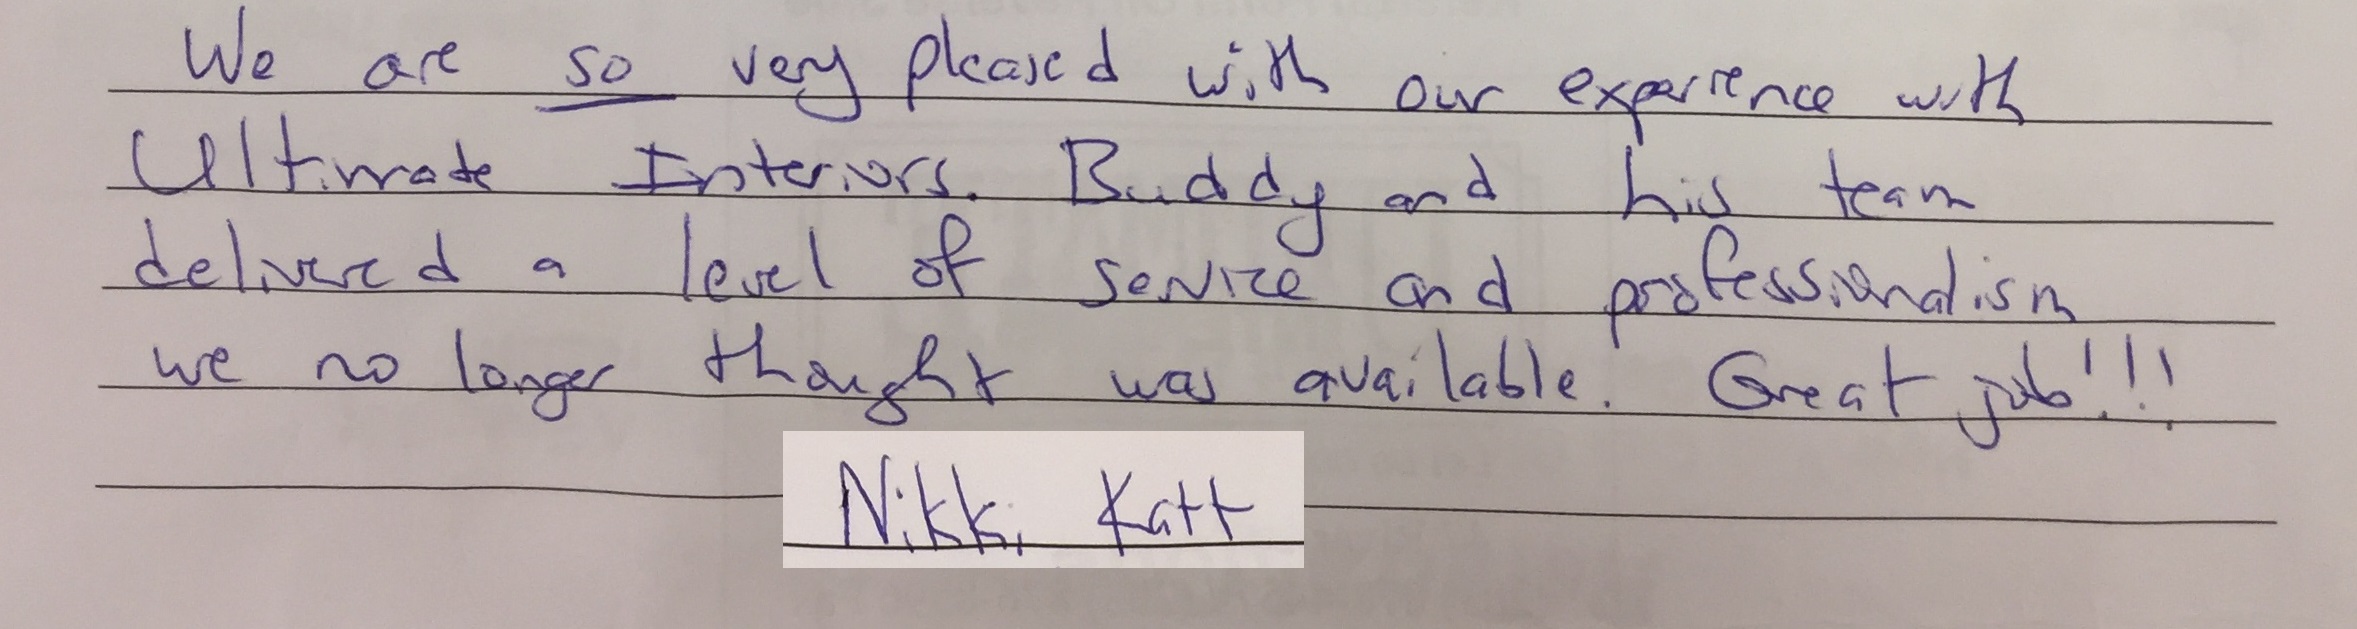 We are so very pleased with our experience with
Ultimate Interiors. Buddy and his team
delivered a level of service and professionalism
we no longer thought was available. Great job!!!
Nikki Katt